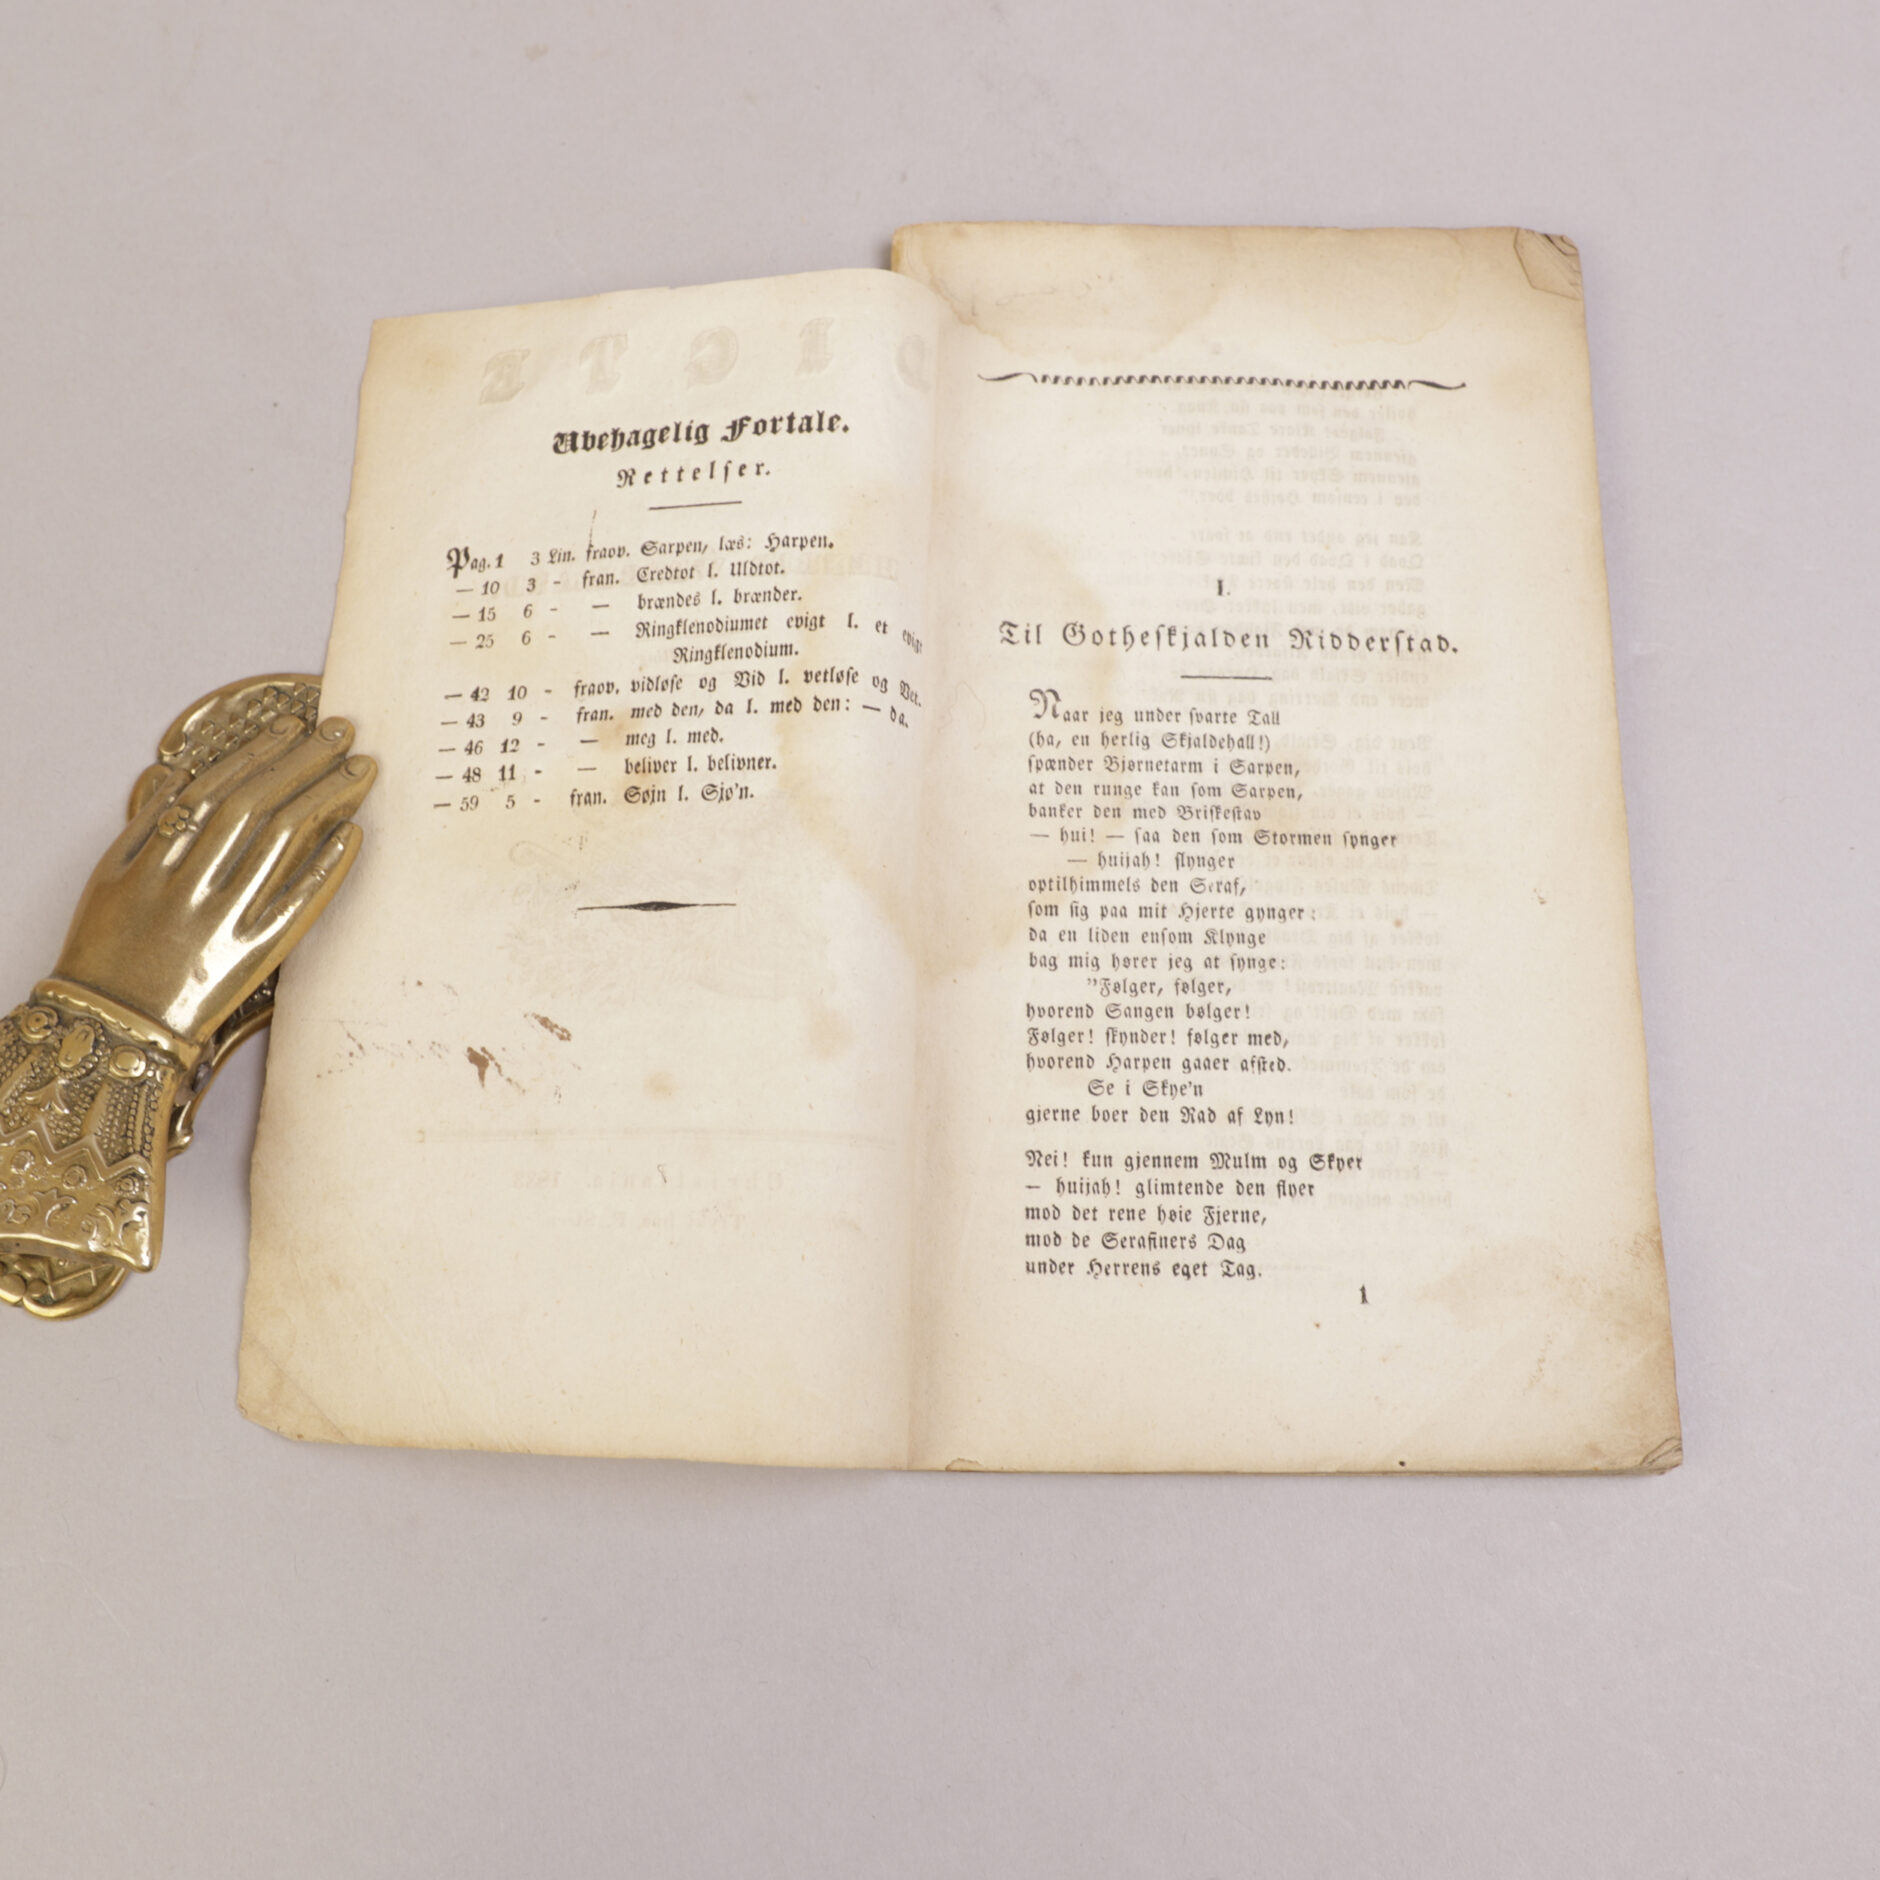 Ubehagelig Fortale.
Rettelser.
Pag. 1 3 Lin. fraov. Sarpen, læs: Harpen.
— 10 3 - fran. Credtot l. Uldtot.
— 15 6 - — brændes l. brænder.
— 25 6 - — Ringklenodiumet evigt l. et evigt
Ringklenodium.
— 42 10 - fraov. vidløse og Vid l. vetløse og Vet.
— 43 9 - fran. med den, da l. med den: — da.
— 46 12 - — meg l. med.
— 48 11 - — beliver l. belivner.
— 59 5 - fran. Søjn l. Sjø'n.
I.
Til Gotheskjalden Ridderstad.
Naar jeg under svarte Tall
(ha, en herlig Skjaldehall!)
spænder Bjørnetarm i Sarpen,
at den runge kan som Sarpen,
banker den med Briskestav
— hui! — saa den som Stormen synger
— huijah! slynger
optilhimmels den Seraf,
som sig paa mit Hjerte gynger:
da en liden ensom Klynge
bag mig hører jeg at synge:
"Følger, følger,
hvorend Sangen bølger!
Følger! skynder! følger med,
hvorend Harpen gaaer afsted.
Se i Skye'n
gjerne boer den Rad af Lyn!
Nei! kun gjennem Mulm og Skyer
— huijah! glimtende den flyer
mod det rene høie Fjerne,
mod de Serafiners Dag
under Herrens eget Tag.
1